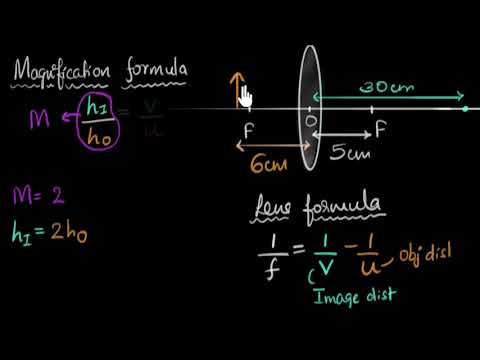 Magnification formula
M ← hI/hO = v/u
30cm
F
O
F
6cm
5cm
M = 2
hI = 2hO
Lens formula
1/f = 1/v - 1/u
Obj dist
Image dist